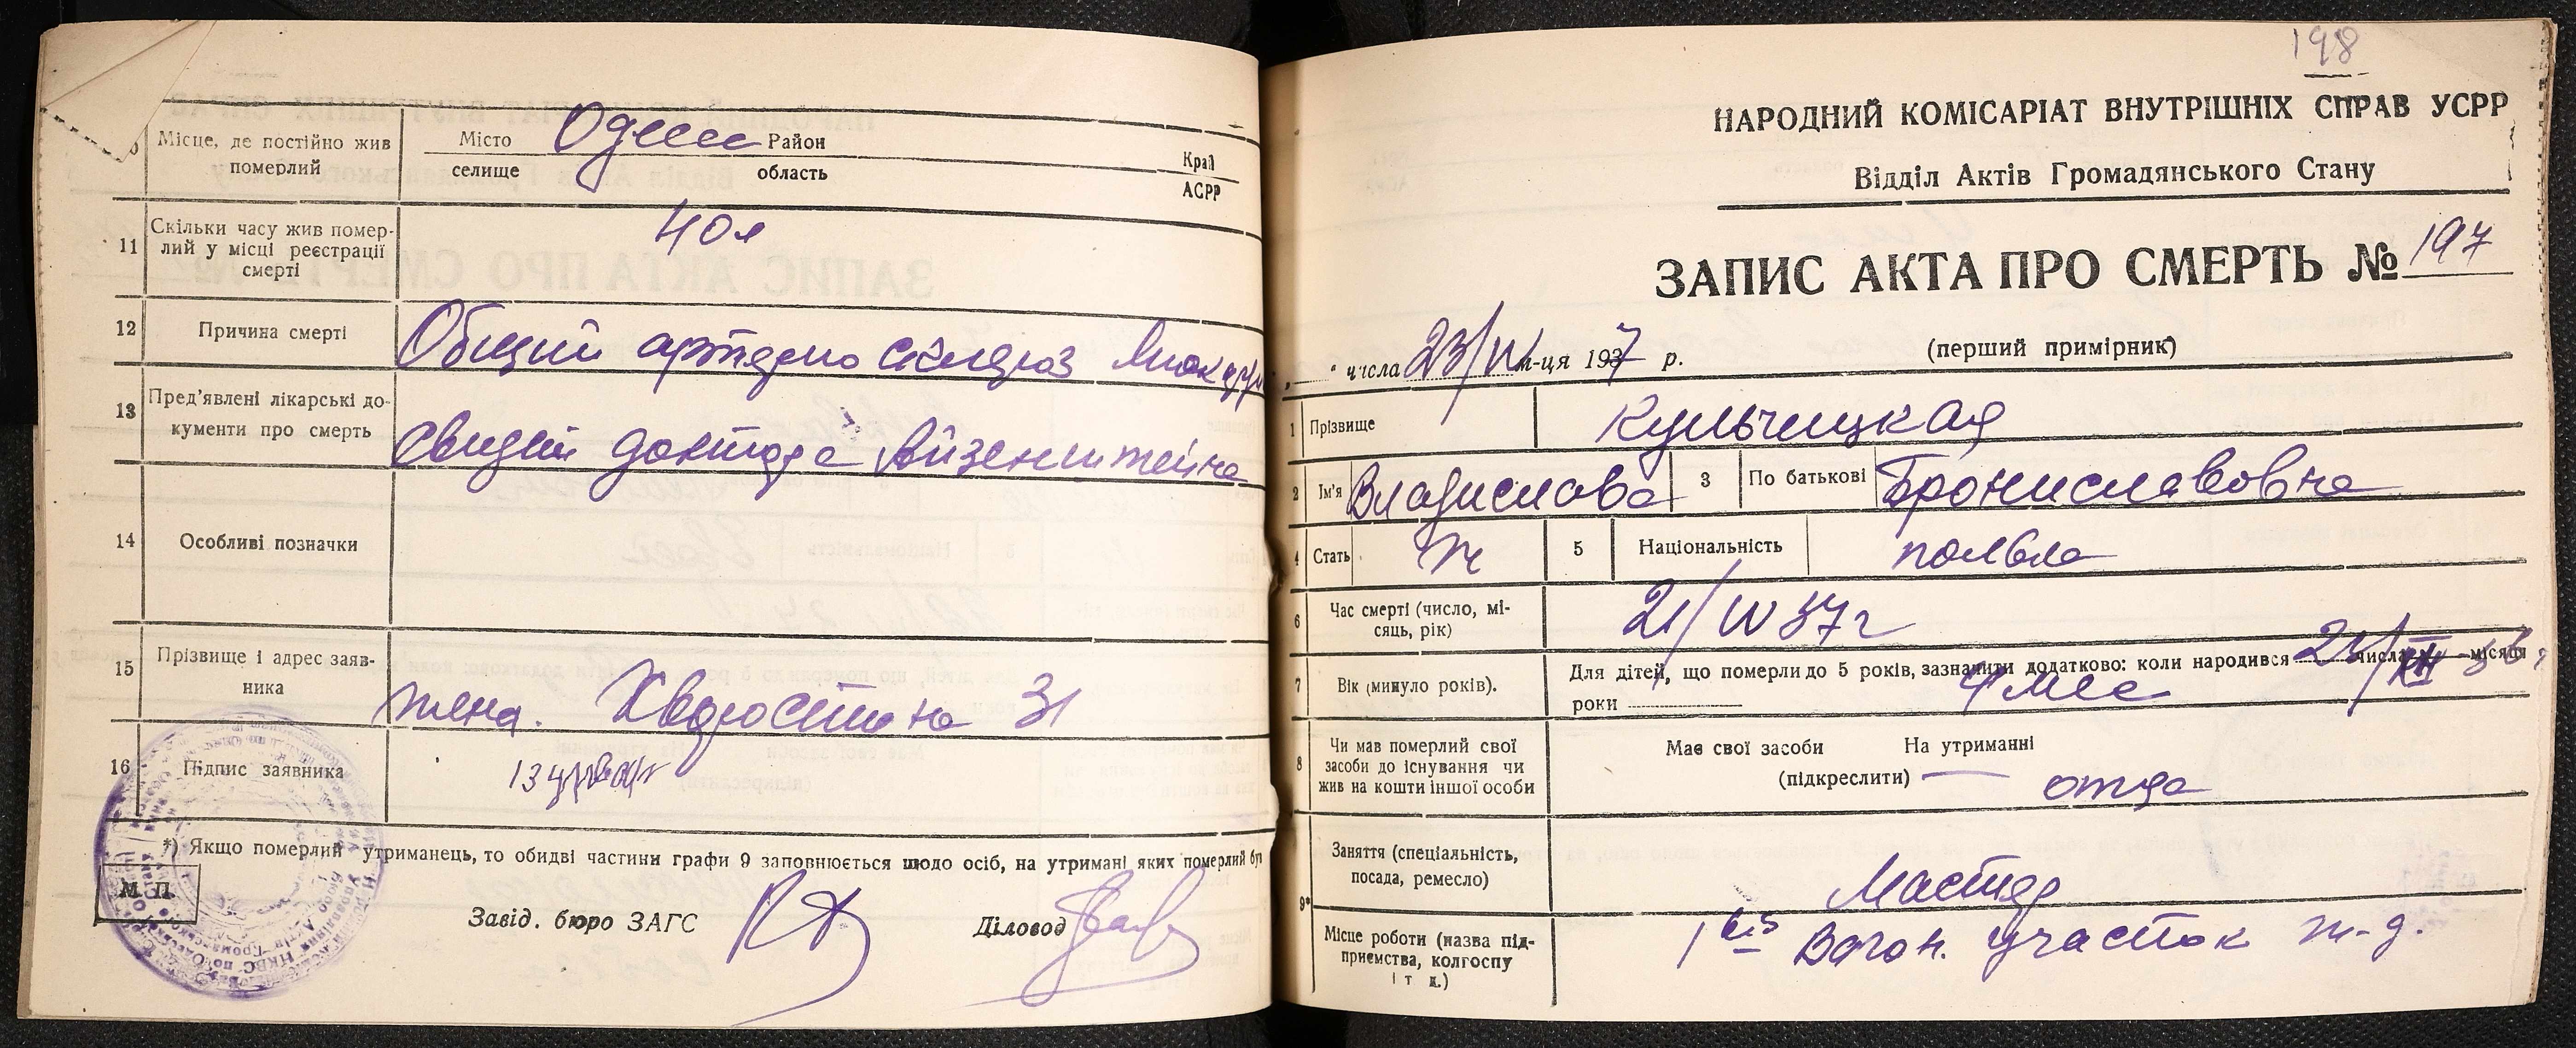 Місце, де постійно жив
померлий
Місто
селище
Одесса
Район
область
Край
АСРР
11
Скільки часу жив помер-
лий у місці реєстрації
смерті
40 л
12
Причина смерті
Общий артерио склероз
13
Пред'явлені лікарські до-
кументи про смерть
доктора Айзенштейна
14
Особливі позначки
15
Прізвище і адрес заяв-
ника
жена. 31
16
Підпис заявника
*) Якщо померлий утриманець, то обидві частини графи 9 заповнюється щодо осіб, на утримані яких померлий бу
М. П.
Завід. бюро ЗАГС
Діловод
198
НАРОДНИЙ КОМІСАРІАТ ВНУТРІШНІХ СПРАВ УСРР
Відділ Актів Громадянського Стану
ЗАПИС АКТА ПРО СМЕРТЬ № 197
„ “ числа 23/IV м-ця 1937 р.
(перший примірник)
1
Прізвище
Кульчицкая
2
Ім'я
Владислава
3
По батькові
Брониславовна
4
Стать
ж
5
Національність
полька
6
Час смерті (число, мі-
сяць, рік)
21/IV 37 г
7
Вік (минуло років).
Для дітей, що померли до 5 років, зазначити додатково: коли народився 21/XII-36 числа місяця
роки
4 мес
8
Чи мав померлий свої
засоби до існування чи
жив на кошти іншої особи
Має свої засоби На утриманні
(підкреслити) — отца
9*
Заняття (спеціальність,
посада, ремесло)
Мастер
Місце роботи (назва під-
приємства, колгоспу
і т д.)
1 Вагон. участок ж-д.